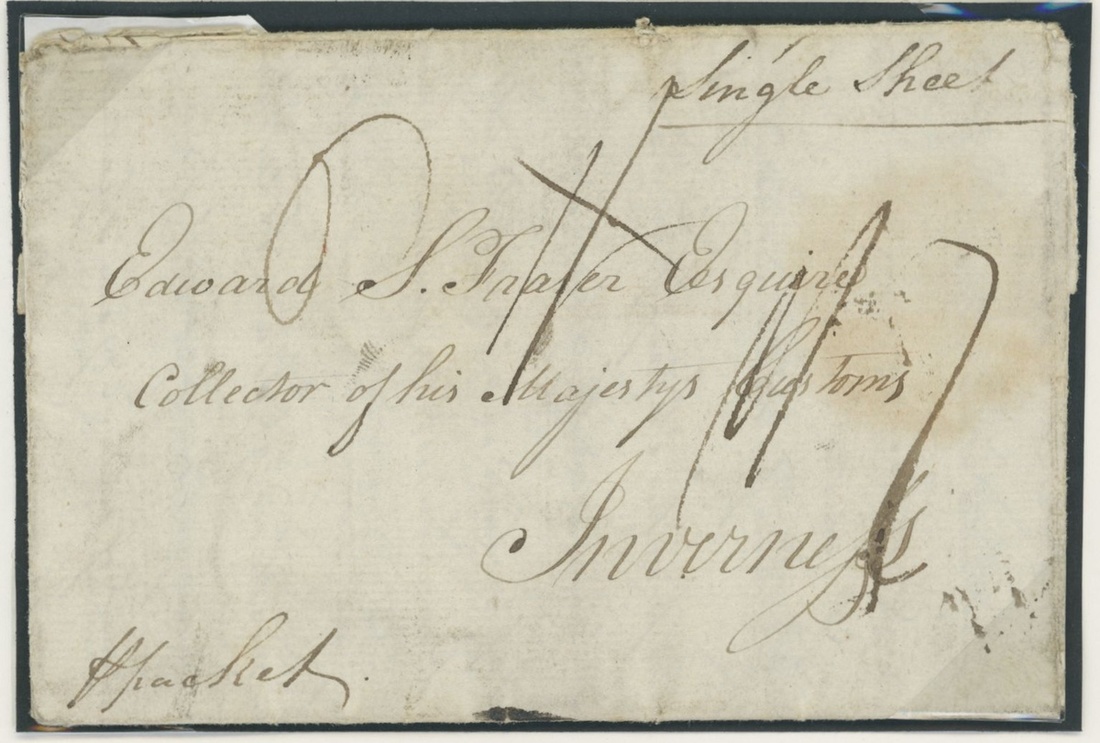 Single Sheet
Edward S. Fraser Esquire
Collector of his Majestys Customs
Inverness
packet